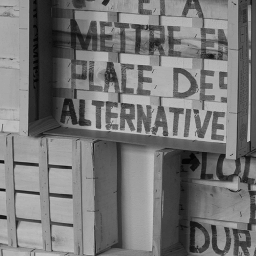 ET A
METTRE EN
PLACE DES
ALTERNATIVE
LOC
DURA